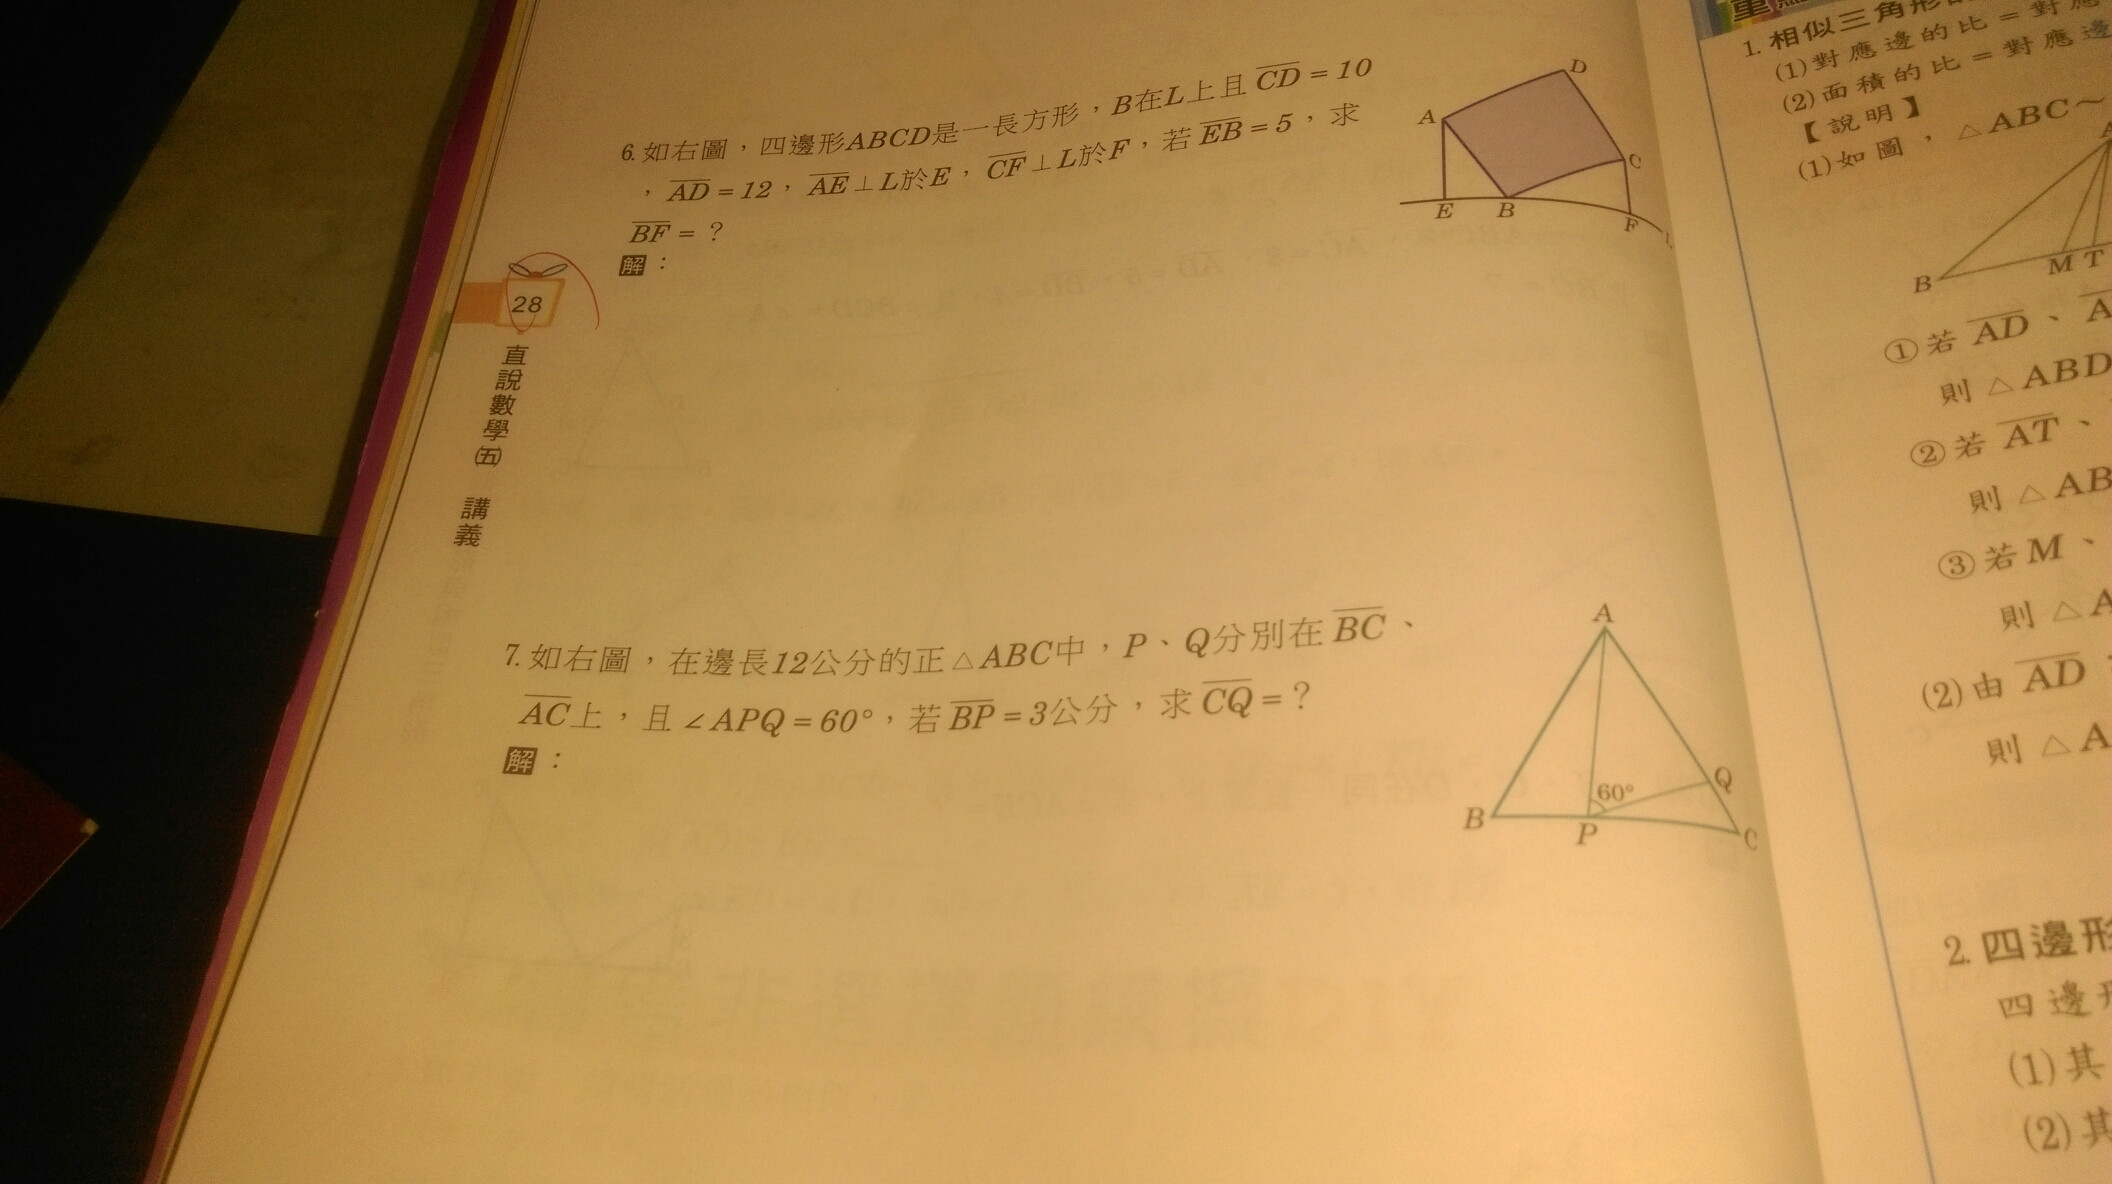 6. 如右圖，四邊形ABCD是一長方形，B在L上且 CD = 10
，AD = 12，AE ⊥ L於E，CF ⊥ L於F，若 EB = 5，求
BF = ？
解：
A
D
C
E
B
F
28
直說數學㈤ 講義
7. 如右圖，在邊長12公分的正△ABC中，P、Q分別在 BC、
AC上，且∠APQ = 60°，若 BP = 3公分，求 CQ = ？
解：
A
Q
60°
B
P
C
1. 相似三角形
(1)對應邊的比 = 對應
(2)面積的比 = 對應邊
【說明】
(1)如圖，△ABC～
B
M T
①若 AD、
則 △ABD
②若 AT、
則 △AB
③若 M、
則 △A
(2)由 AD
則 △A
2. 四邊形
四邊形
(1)其
(2)其